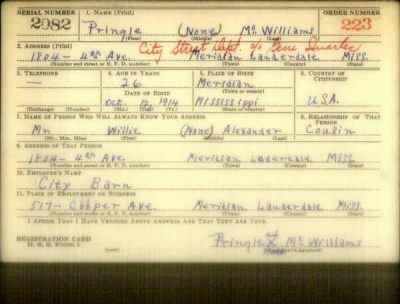 SERIAL NUMBER 1. NAME (Print) ORDER NUMBER
2082 Pringle (None) Mc Williams 223
(First) (Middle) (Last)
2. ADDRESS (Print) City Street Dept. c/o Gene
1804- 4th Ave. Meridian Lauderdale Miss.
(Number and street or R. F. D. number) (Town) (County) (State)
3. TELEPHONE 4. AGE IN YEARS 5. PLACE OF BIRTH 6. COUNTRY OF CITIZENSHIP
26 Meridian
DATE OF BIRTH (Town or county)
Oct. 12, 1914 Mississippi U.S.A.
(Exchange) (Number) (Mo.) (Day) (Yr.) (State or country)
7. NAME OF PERSON WHO WILL ALWAYS KNOW YOUR ADDRESS 8. RELATIONSHIP OF THAT PERSON
Mr. Willie (None) Alexander Cousin
(Mr., Mrs., Miss) (First) (Middle) (Last)
9. ADDRESS OF THAT PERSON
1804- 4th Ave. Meridian Lauderdale Miss.
(Number and street or R. F. D. number) (Town) (County) (State)
10. EMPLOYER'S NAME
City Barn
11. PLACE OF EMPLOYMENT OR BUSINESS
517- Cooper Ave. Meridian Lauderdale Miss.
(Number and street or R. F. D. number) (Town) (County) (State)
I AFFIRM THAT I HAVE VERIFIED ABOVE ANSWERS AND THAT THEY ARE TRUE.
REGISTRATION CARD
D. S. S. Form 1 Pringle X Mc Williams